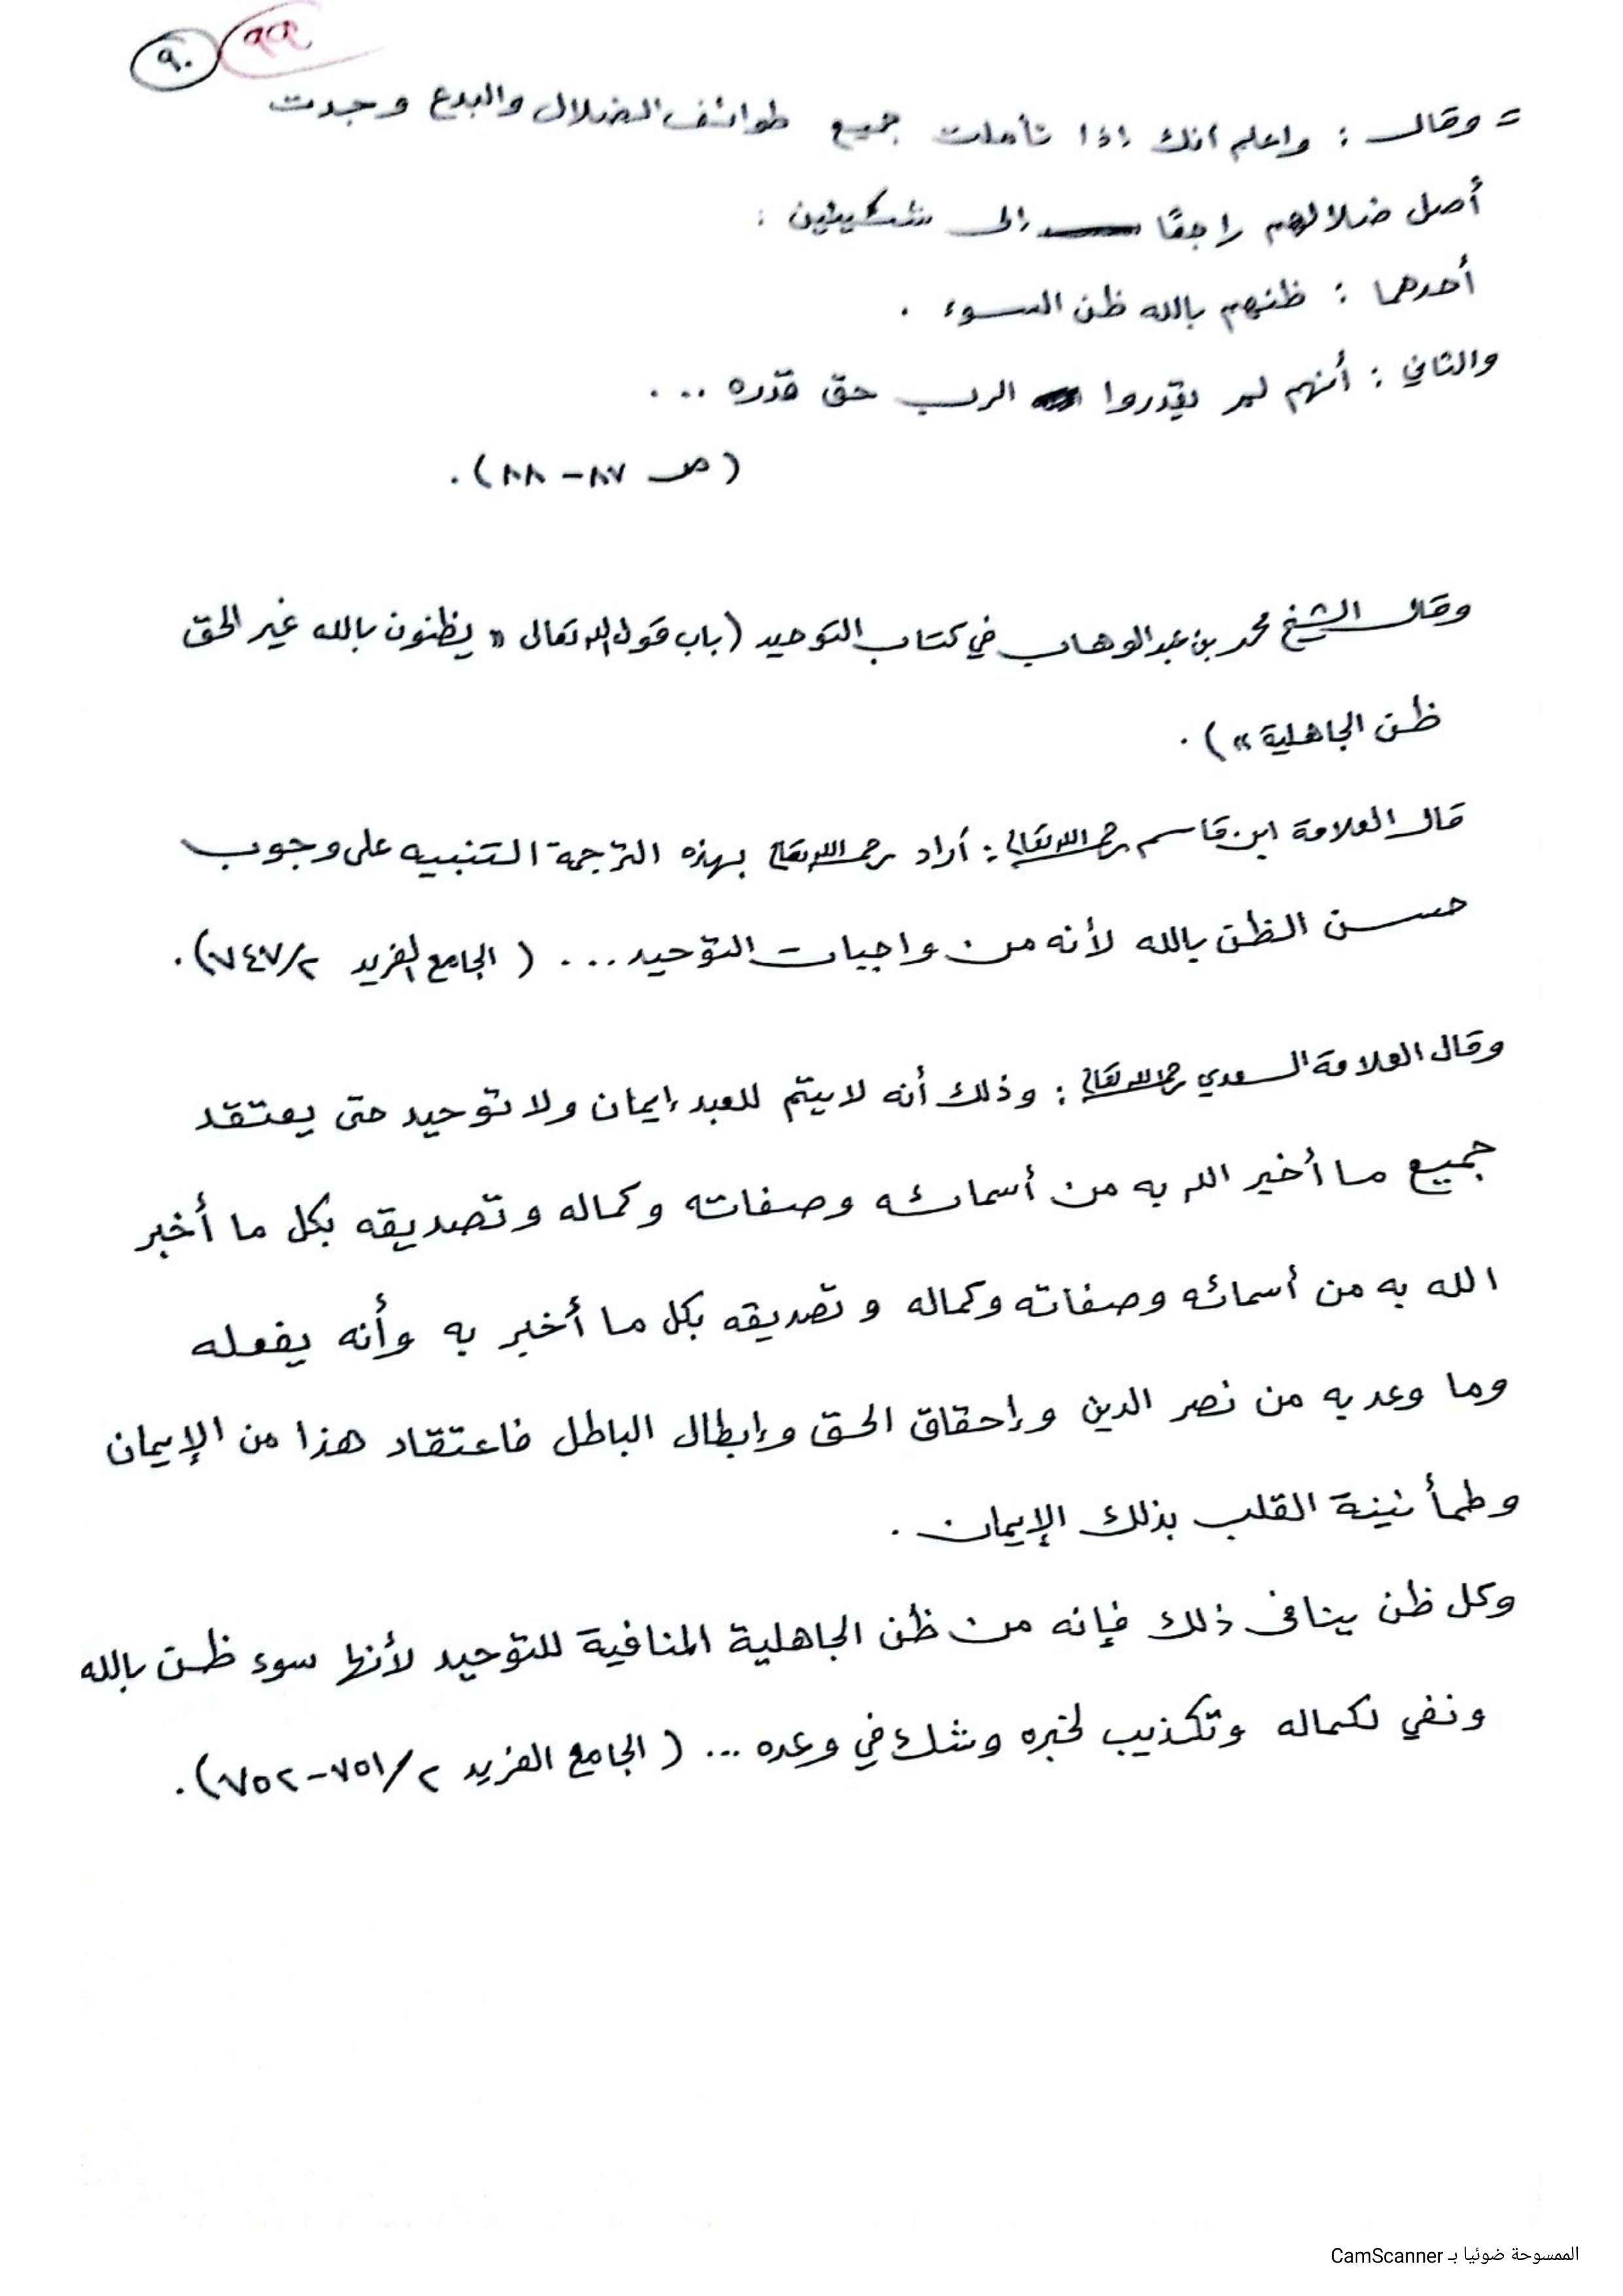 ٩٠ ٩٩
= وقال : واعلم أنك إذا تأملت جميع طوائف الضلال والبدع وجدت
أصل ضلالهم راجعًا إلى شكيئين :
أحدهما : ظنهم بالله ظن السوء .
والثاني : أنهم لم يقدروا الرب حق قدره ...
( ص ٨٧ - ٨٨ ) .
وقال الشيخ محمد بن عبد الوهاب في كتاب التوحيد ( باب قول الله تعالى « يظنون بالله غير الحق
ظن الجاهلية » ) .
قال العلامة ابن قاسم رحمه الله تعالى : أراد رحمه الله تعالى بهذه الترجمة التنبيه على وجوب
حسن الظن بالله لأنه من واجبات التوحيد ... ( الجامع الفريد ٢/٧٤٧ ) .
وقال العلامة السعدي رحمه الله تعالى : وذلك أنه لا يتم للعبد إيمان ولا توحيد حتى يعتقد
جميع ما أخبر الله به من أسمائه وصفاته وكماله وتصديقه بكل ما أخبر
الله به من أسمائه وصفاته وكماله وتصديقه بكل ما أخبر به وأنه يفعله
وما وعد به من نصر الدين وإحقاق الحق وإبطال الباطل فاعتقاد هذا من الإيمان
وطمأنينة القلب بذلك الإيمان .
وكل ظن ينافى ذلك فإنه من ظن الجاهلية المنافية للتوحيد لأنها سوء ظن بالله
ونفي لكماله وتكذيب لخبره وشك في وعده ... ( الجامع الفريد ٢/٧٥١-٧٥٢ ) .
الممسوحة ضوئيا بـ CamScanner